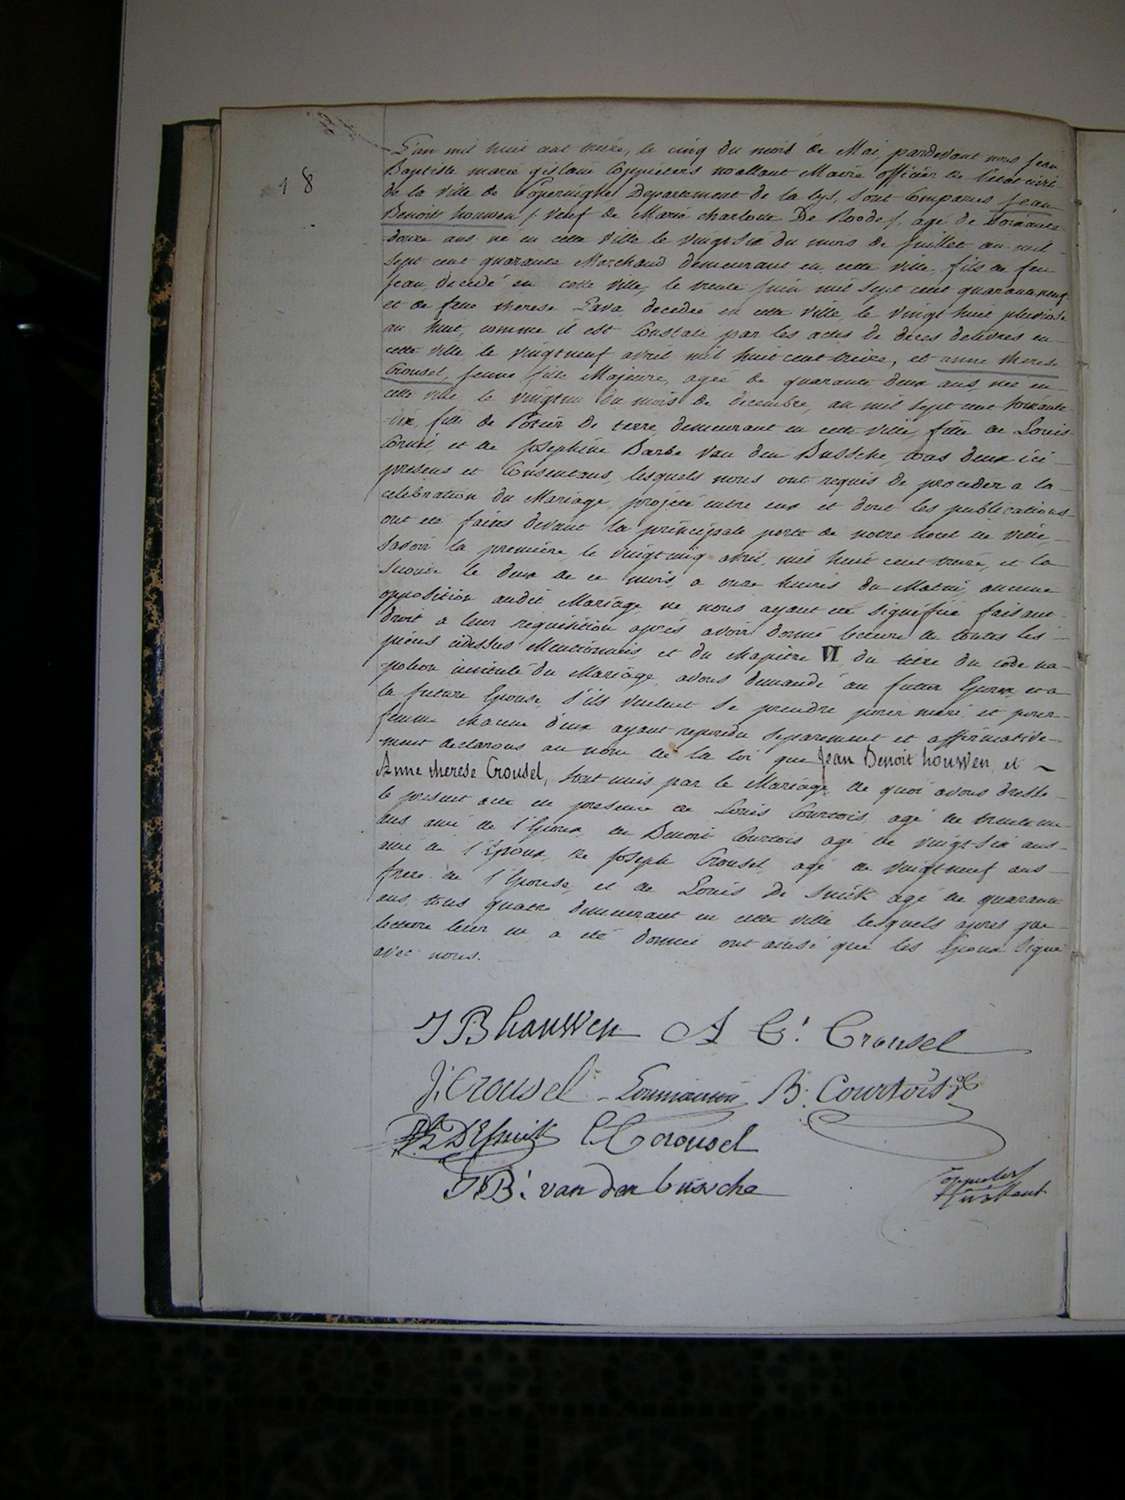 18
L'an mil huit cent treize, le cinq du mois de Mai, pardevant nous Jean
Baptiste marie gislain Coppieters wallant Maire officier de l'etat civil
de la ville de Poperinghe Departement de la lys, sont Comparus Jean
Benoit houwen / Veuf de Marie Charlotte De Roode /, agé de soixante
douze ans, né en cette Ville le Vingt Six du mois de Juillet an mil
sept cent quarante Marchand demeurant en cette Ville, fils de feu
Jean, decedé en cette Ville, le trente Juin mil sept cent quarante neuf
et de feue therese Pava decedée en cette Ville, le Vingt huit pluviose
an huit, comme il est Constaté par les actes de déces delivrés en
cette ville le Vingt neuf avril mil huit cent treize, et anne therese
Crousel, Jeune fille Majeure, agée de quarante deux ans, née en
cette Ville, le Vingt du mois de decembre, an mil sept cent soixante
dix, de Potier de terre demeurant en cette Ville, fille de Louis
Crousel, et de Josephine Barbe Van den Bussche, tous deux ici
presens et Consentans, lesquels nous ont requis de proceder a la
celebration du Mariage projeté entre eux et dont les publications
ont été faites devant la principale porte de notre hotel de Ville
Savoir la premiere, le Vingt cinq avril, mil huit cent treize, et la
seconde le deux de ce mois, a onze heures du Matin, aucune
opposition audit Mariage ne nous ayant été signifiée faisant
droit a leur requisition après avoir donné lecture de toutes les
pieces cidessus Mentionnées et du chapitre VI du titre du code na-
poleon intitulé du Mariage, avons demandé au futur Epoux et a
la future Epouse, s'ils veulent se prendre pour mari et pour
femme chacun d'eux ayant repondu separement et affirmative-
ment declarons au nom de la loi que Jean Benoit houwen, et
Anne therese Crousel, sont unis par le Mariage. De quoi avons dressé
le present acte en presence de Louis Courtois, agé de
ans ami de l'Epoux, de Benoit Courtois agé de Vingt-six ans
ami de l'Epoux, de Joseph Crousel, agé de Vingt neuf ans
frere de l'Epouse, et de Louis De Smick agé de quarante
ans, tous quatre demeurant en cette Ville lesquels apres que
lecture leur en a été donnée ont ainsi que les Epoux Signé
avec nous.
J B houwen A C. Crousel
J. Crousel B. Courtois
L Crousel
J. B. van den bussche